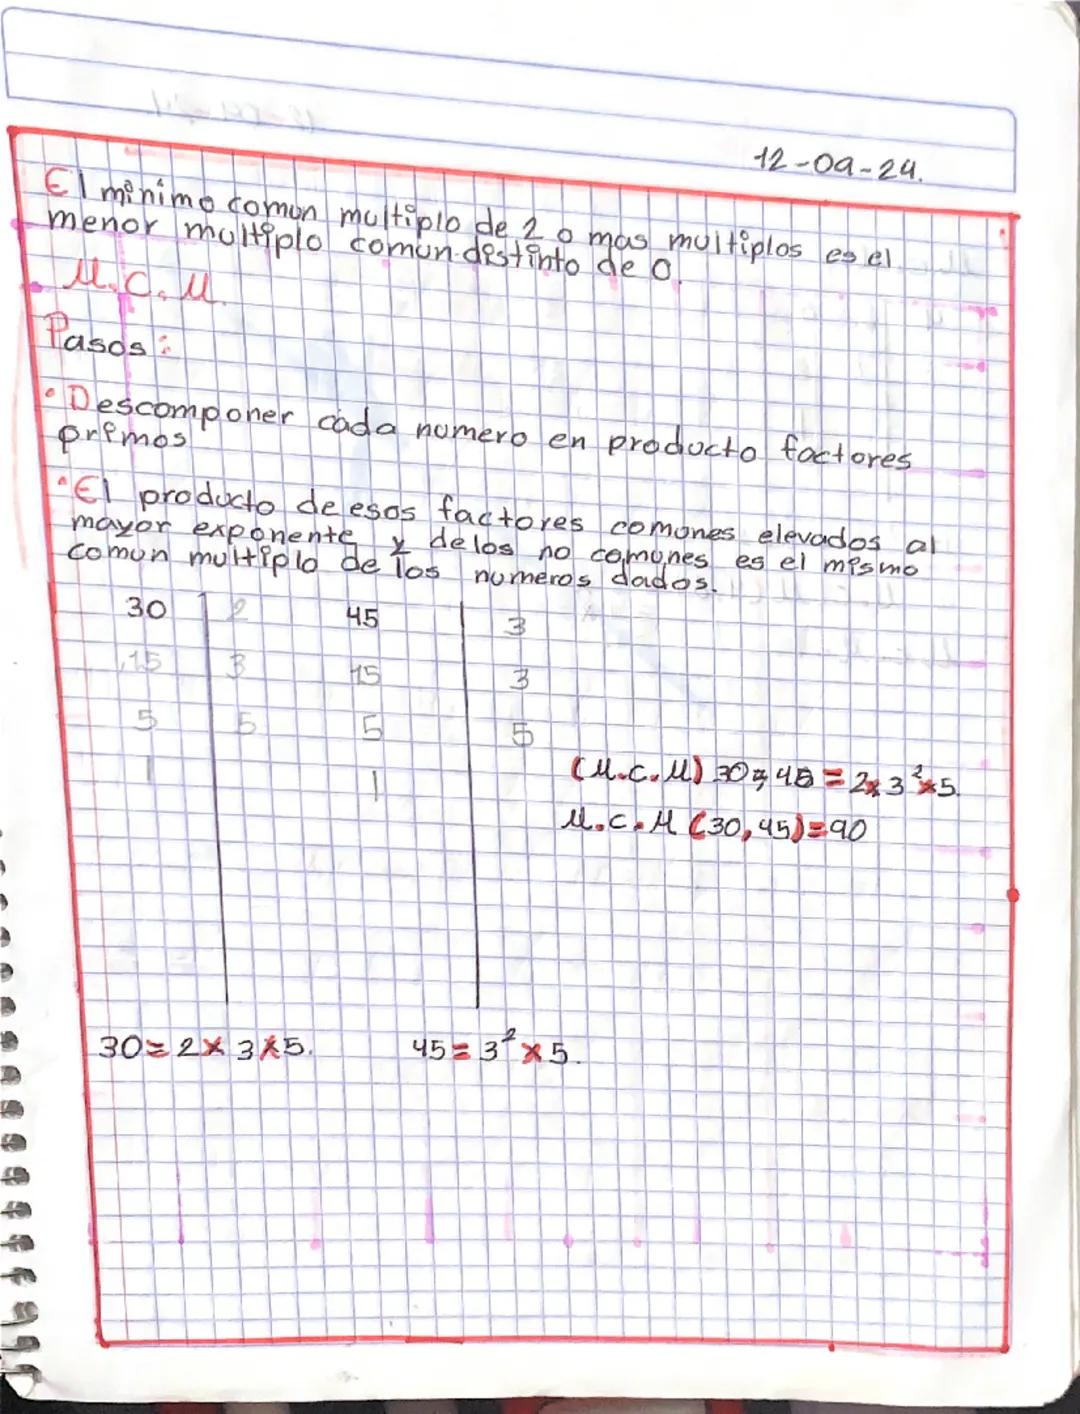 12-09-24.
El minimo comun multiplo de 2 o mas multiplos es el
menor multiplo comun distinto de 0.
M.C.M.
Pasos:
• Descomponer cada numero en producto factores
primos
• El producto de esos factores comunes elevados al
mayor exponente y delos no comunes es el mismo
comun multiplo de los numeros dados.
30 2 45 3
15 3 15 3
5 5 5 5
1 1
(M.C.M) 30 y 45 = 2x3²x5.
M.C.M (30,45)=90
30=2x3x5. 45=3²x5.